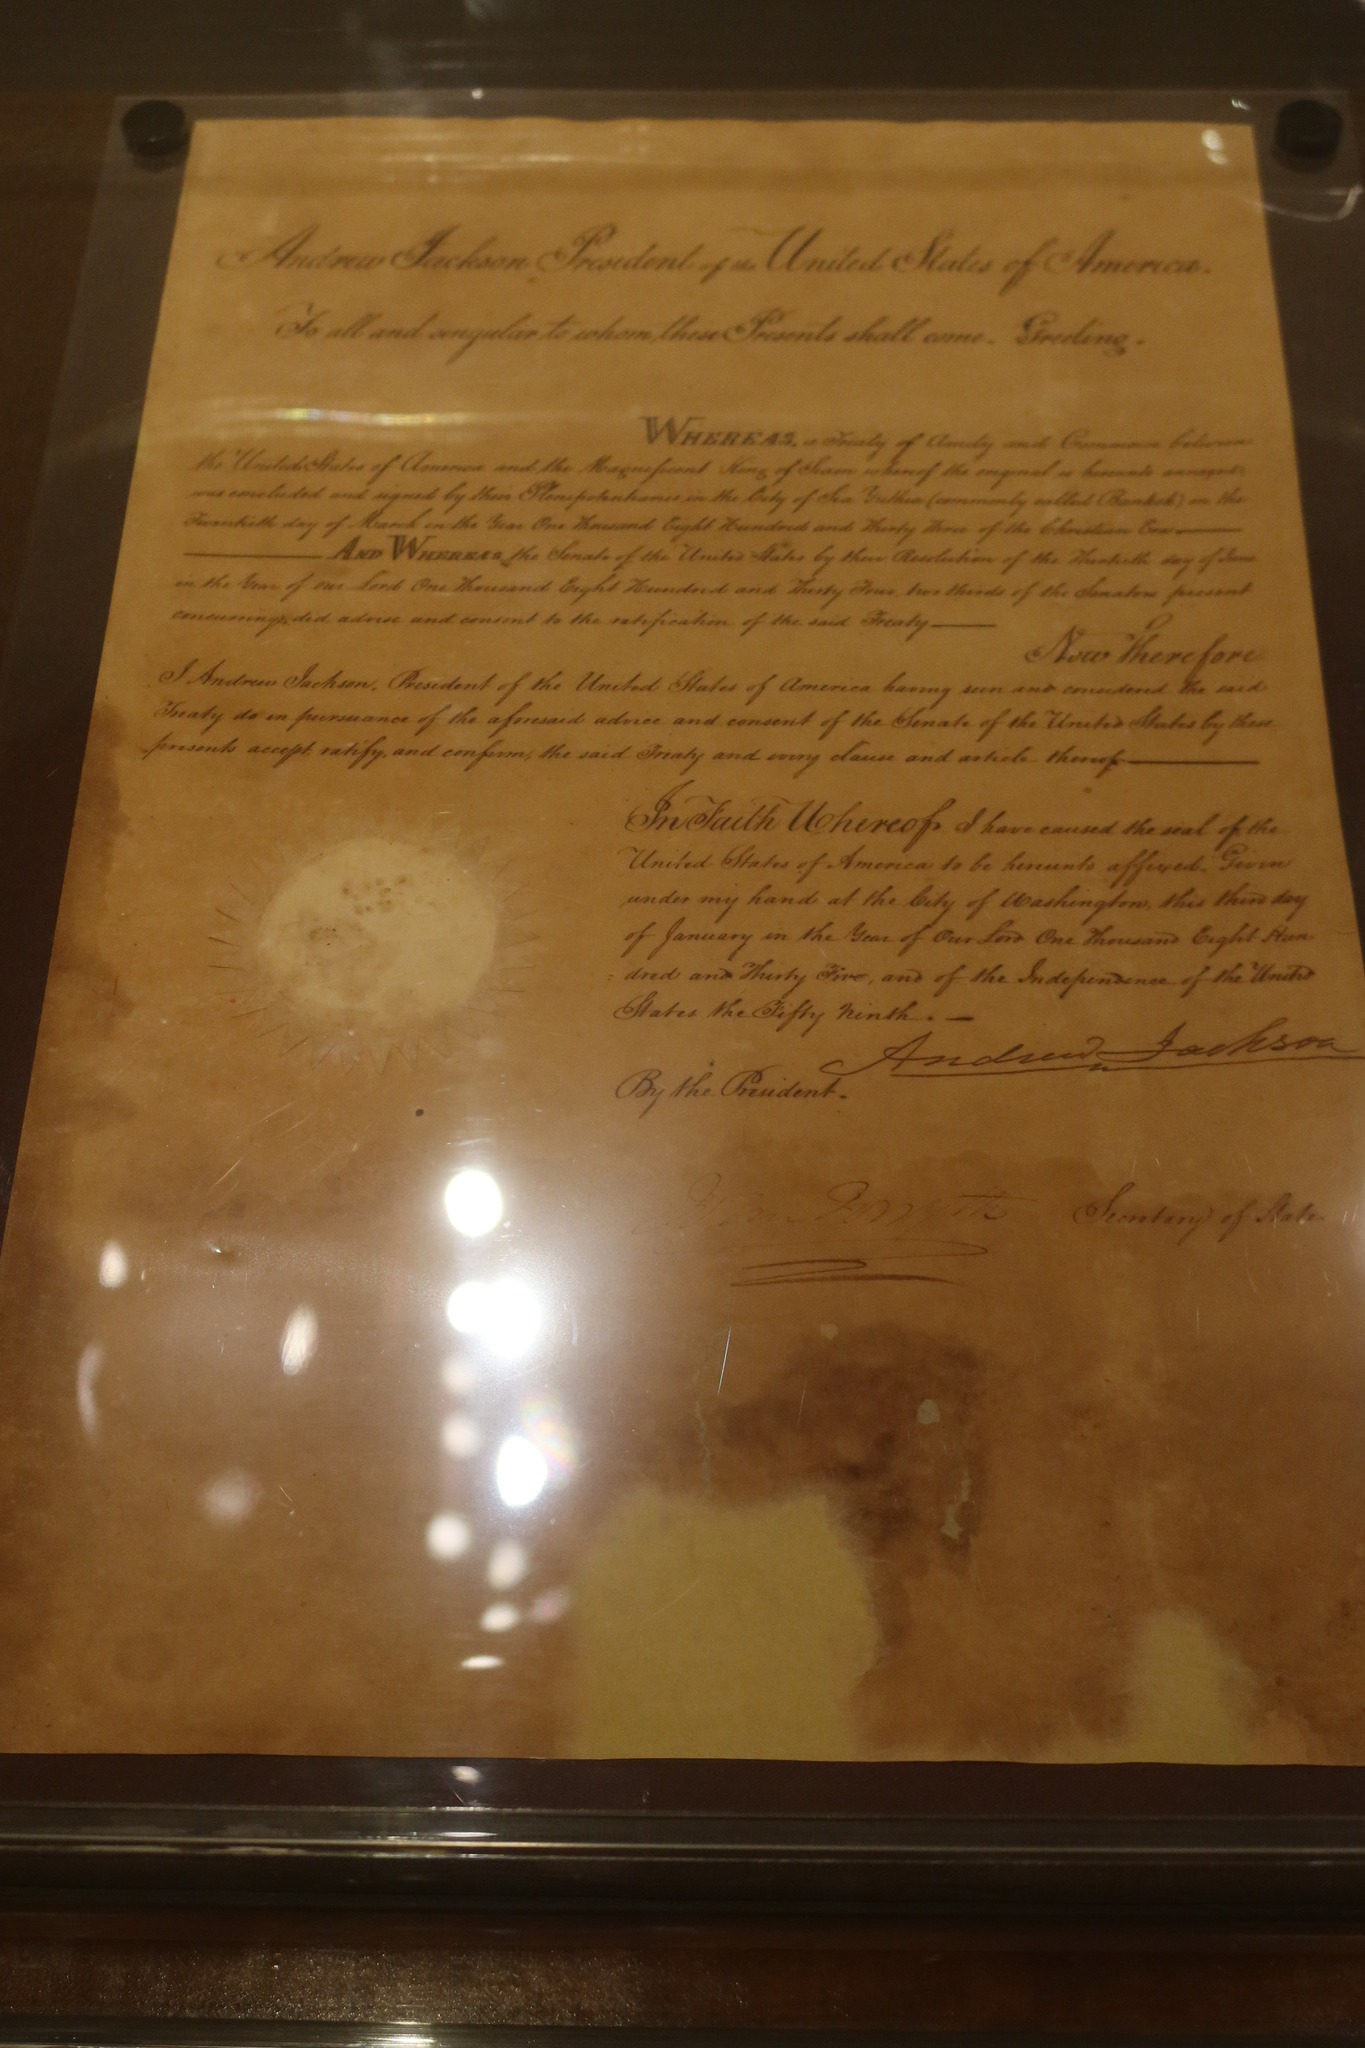 Andrew Jackson President of the United States of America.
To all and singular to whom these Presents shall come. Greeting.
WHEREAS, a Treaty of Amity and Commerce between
the United States of America and the Magnificent King of Siam whereof the original is hereunto annexed
was concluded and signed by their Plenipotentiaries in the City of Sia Yuthia (commonly called Bankok) on the
Twentieth day of March in the Year One Thousand Eight Hundred and Thirty three of the Christian Era
AND WHEREAS, the Senate of the United States by their Resolution of the Thirtieth day of June
in the Year of our Lord One Thousand Eight Hundred and Thirty Four two thirds of the Senators present
concurring, did advise and consent to the ratification of the said Treaty
Now Therefore
I Andrew Jackson, President of the United States of America having seen and considered the said
Treaty do in pursuance of the aforesaid advice and consent of the Senate of the United States by these
presents accept, ratify, and confirm, the said Treaty and every clause and article thereof
In Faith Whereof, I have caused the seal of the
United States of America to be hereunto affixed. Given
under my hand at the City of Washington, this third day
of January in the Year of Our Lord One Thousand Eight Hun
:dred and Thirty Five, and of the Independence of the United
States the Fifty Ninth.
Andrew Jackson
By the President.
John Forsyth Secretary of State